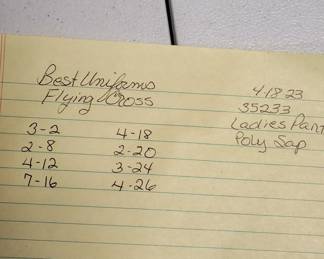 Best Uniforms
Flying Cross
4-18-23
35233
Ladies Pant
Poly Sap
3-2
2-8
4-12
7-16
4-18
2-20
3-24
4-26